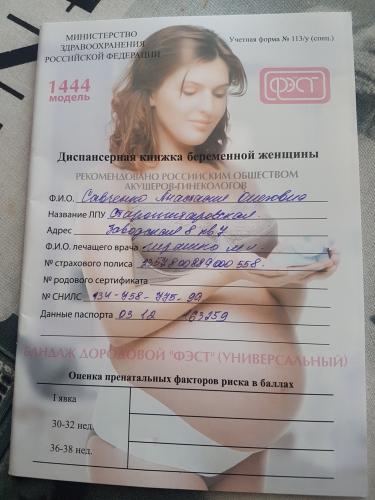 МИНИСТЕРСТВО
ЗДРАВООХРАНЕНИЯ
РОССИЙСКОЙ ФЕДЕРАЦИИ
Учетная форма № 113/у (спец.)
1444
модель
ФЭСТ
Диспансерная книжка беременной женщины
РЕКОМЕНДОВАНО РОССИЙСКИМ ОБЩЕСТВОМ
АКУШЕРОВ-ГИНЕКОЛОГОВ
Ф.И.О. Савченко Анастасия Олеговна
Название ЛПУ
Адрес Заводская 8 кв 7
Ф.И.О. лечащего врача
№ страхового полиса
№ родового сертификата
№ СНИЛС 134-758-775-99
Данные паспорта 03 12 163259
БАНДАЖ ДОРОДОВОЙ "ФЭСТ" (УНИВЕРСАЛЬНЫЙ)
Оценка пренатальных факторов риска в баллах
I явка
30-32 нед.
36-38 нед.